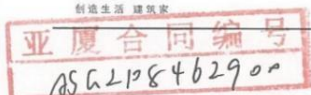 创造生活 建筑家
亚厦合同编号
ASG210846290